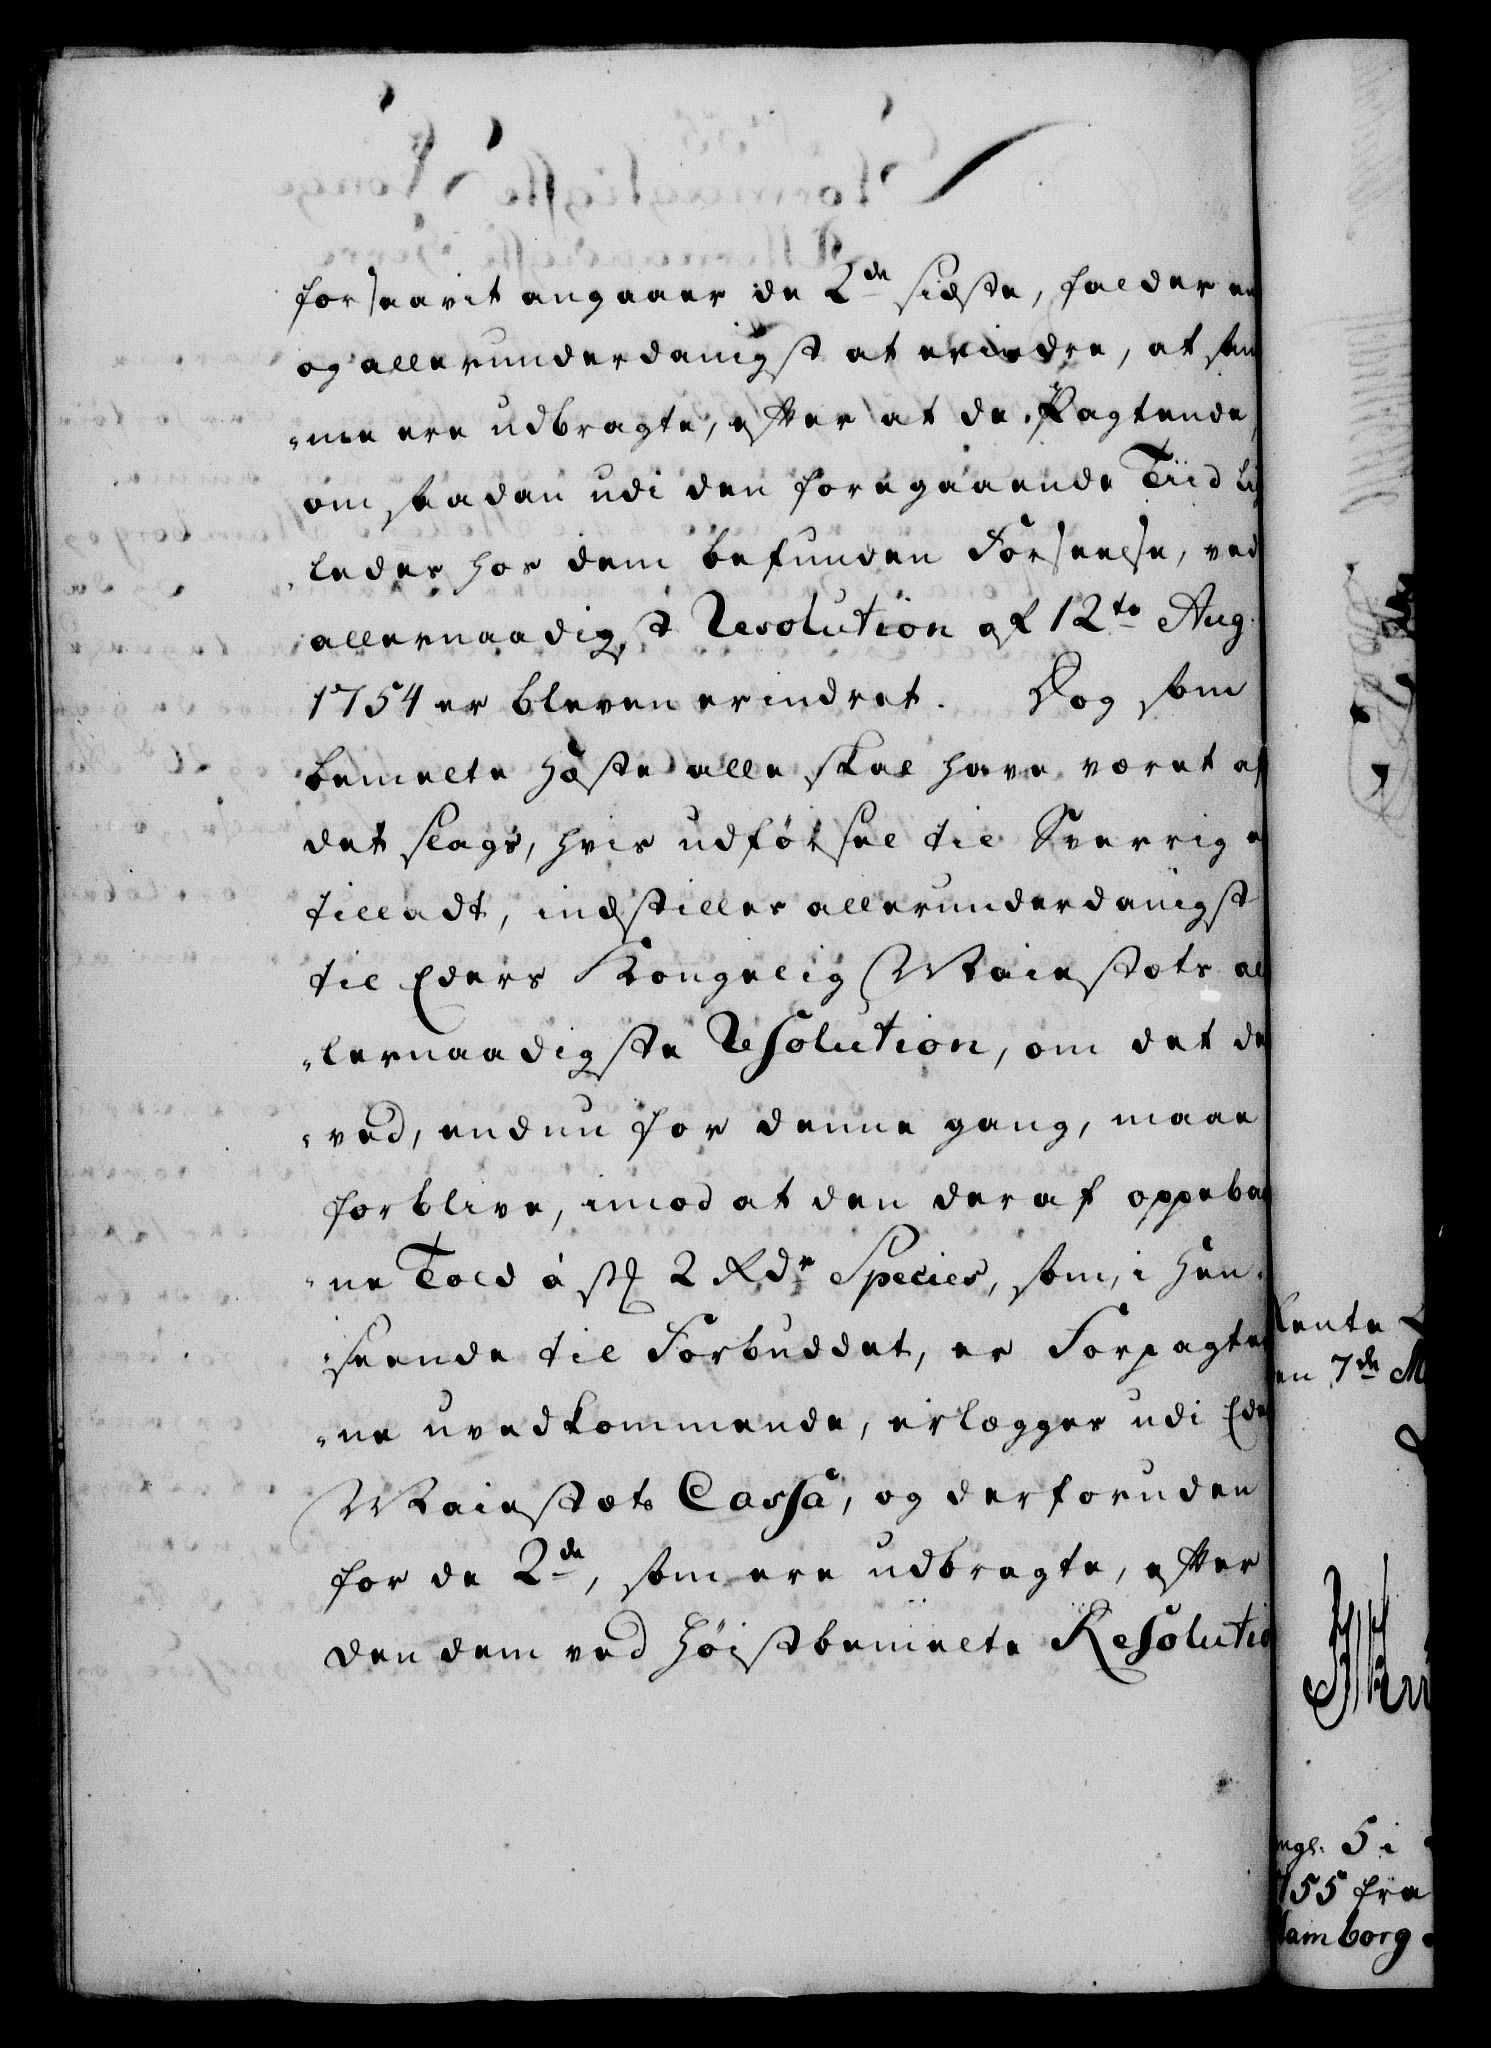 forsaavit angaaer de 2de sidste, falder en
og allerunderdanigst at erindre, at sam
„me ere udbragte, efter at de Pagtende,
om saadan udi den foregaaende Tiid li
„ledes hos dem befunden Forseelse, ved
allernaadigst Resolution af 12te Aug.
1754 er bleven erindret. Dog som
bemelte Hæste alle skal have været af
det slags, hvis udførsel til Sverrig e
tilladt, indstilles allerunderdanigst
til Eders Kongelig Maiestæts al
„lernaadigste Resolution, om det de
„ved, endnu for denne gang, maae
forblive, imod at den deraf oppebaa
„ne Told à st 2 Rdr Species, som, i Hen„
„seende til Forbuddet, er Forpagter
„ne uvedkommende, erlægges udi Ede
Maiestæts Cassa, og derforuden
for de 2de, som ere udbragte, efter
den dem ved høistbemelte Resolutio
Rente
en 7de M
ngl. 5 i
755 fra
Hamborg